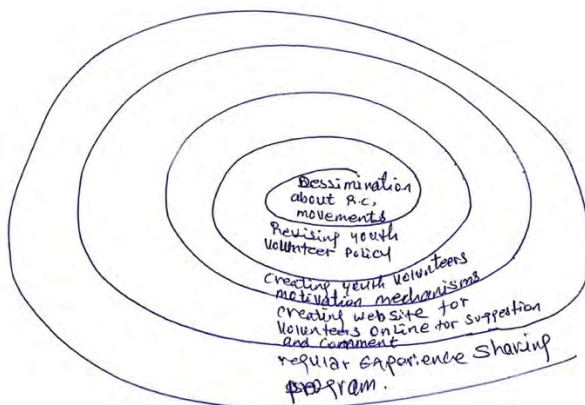 Dessimination
about R.C,
movements
Revising youth
volunteer policy
creating youth volunteers
motivation mechanisms
creating website for
volunteers online for suggestion
and comment
regular experience sharing
program.